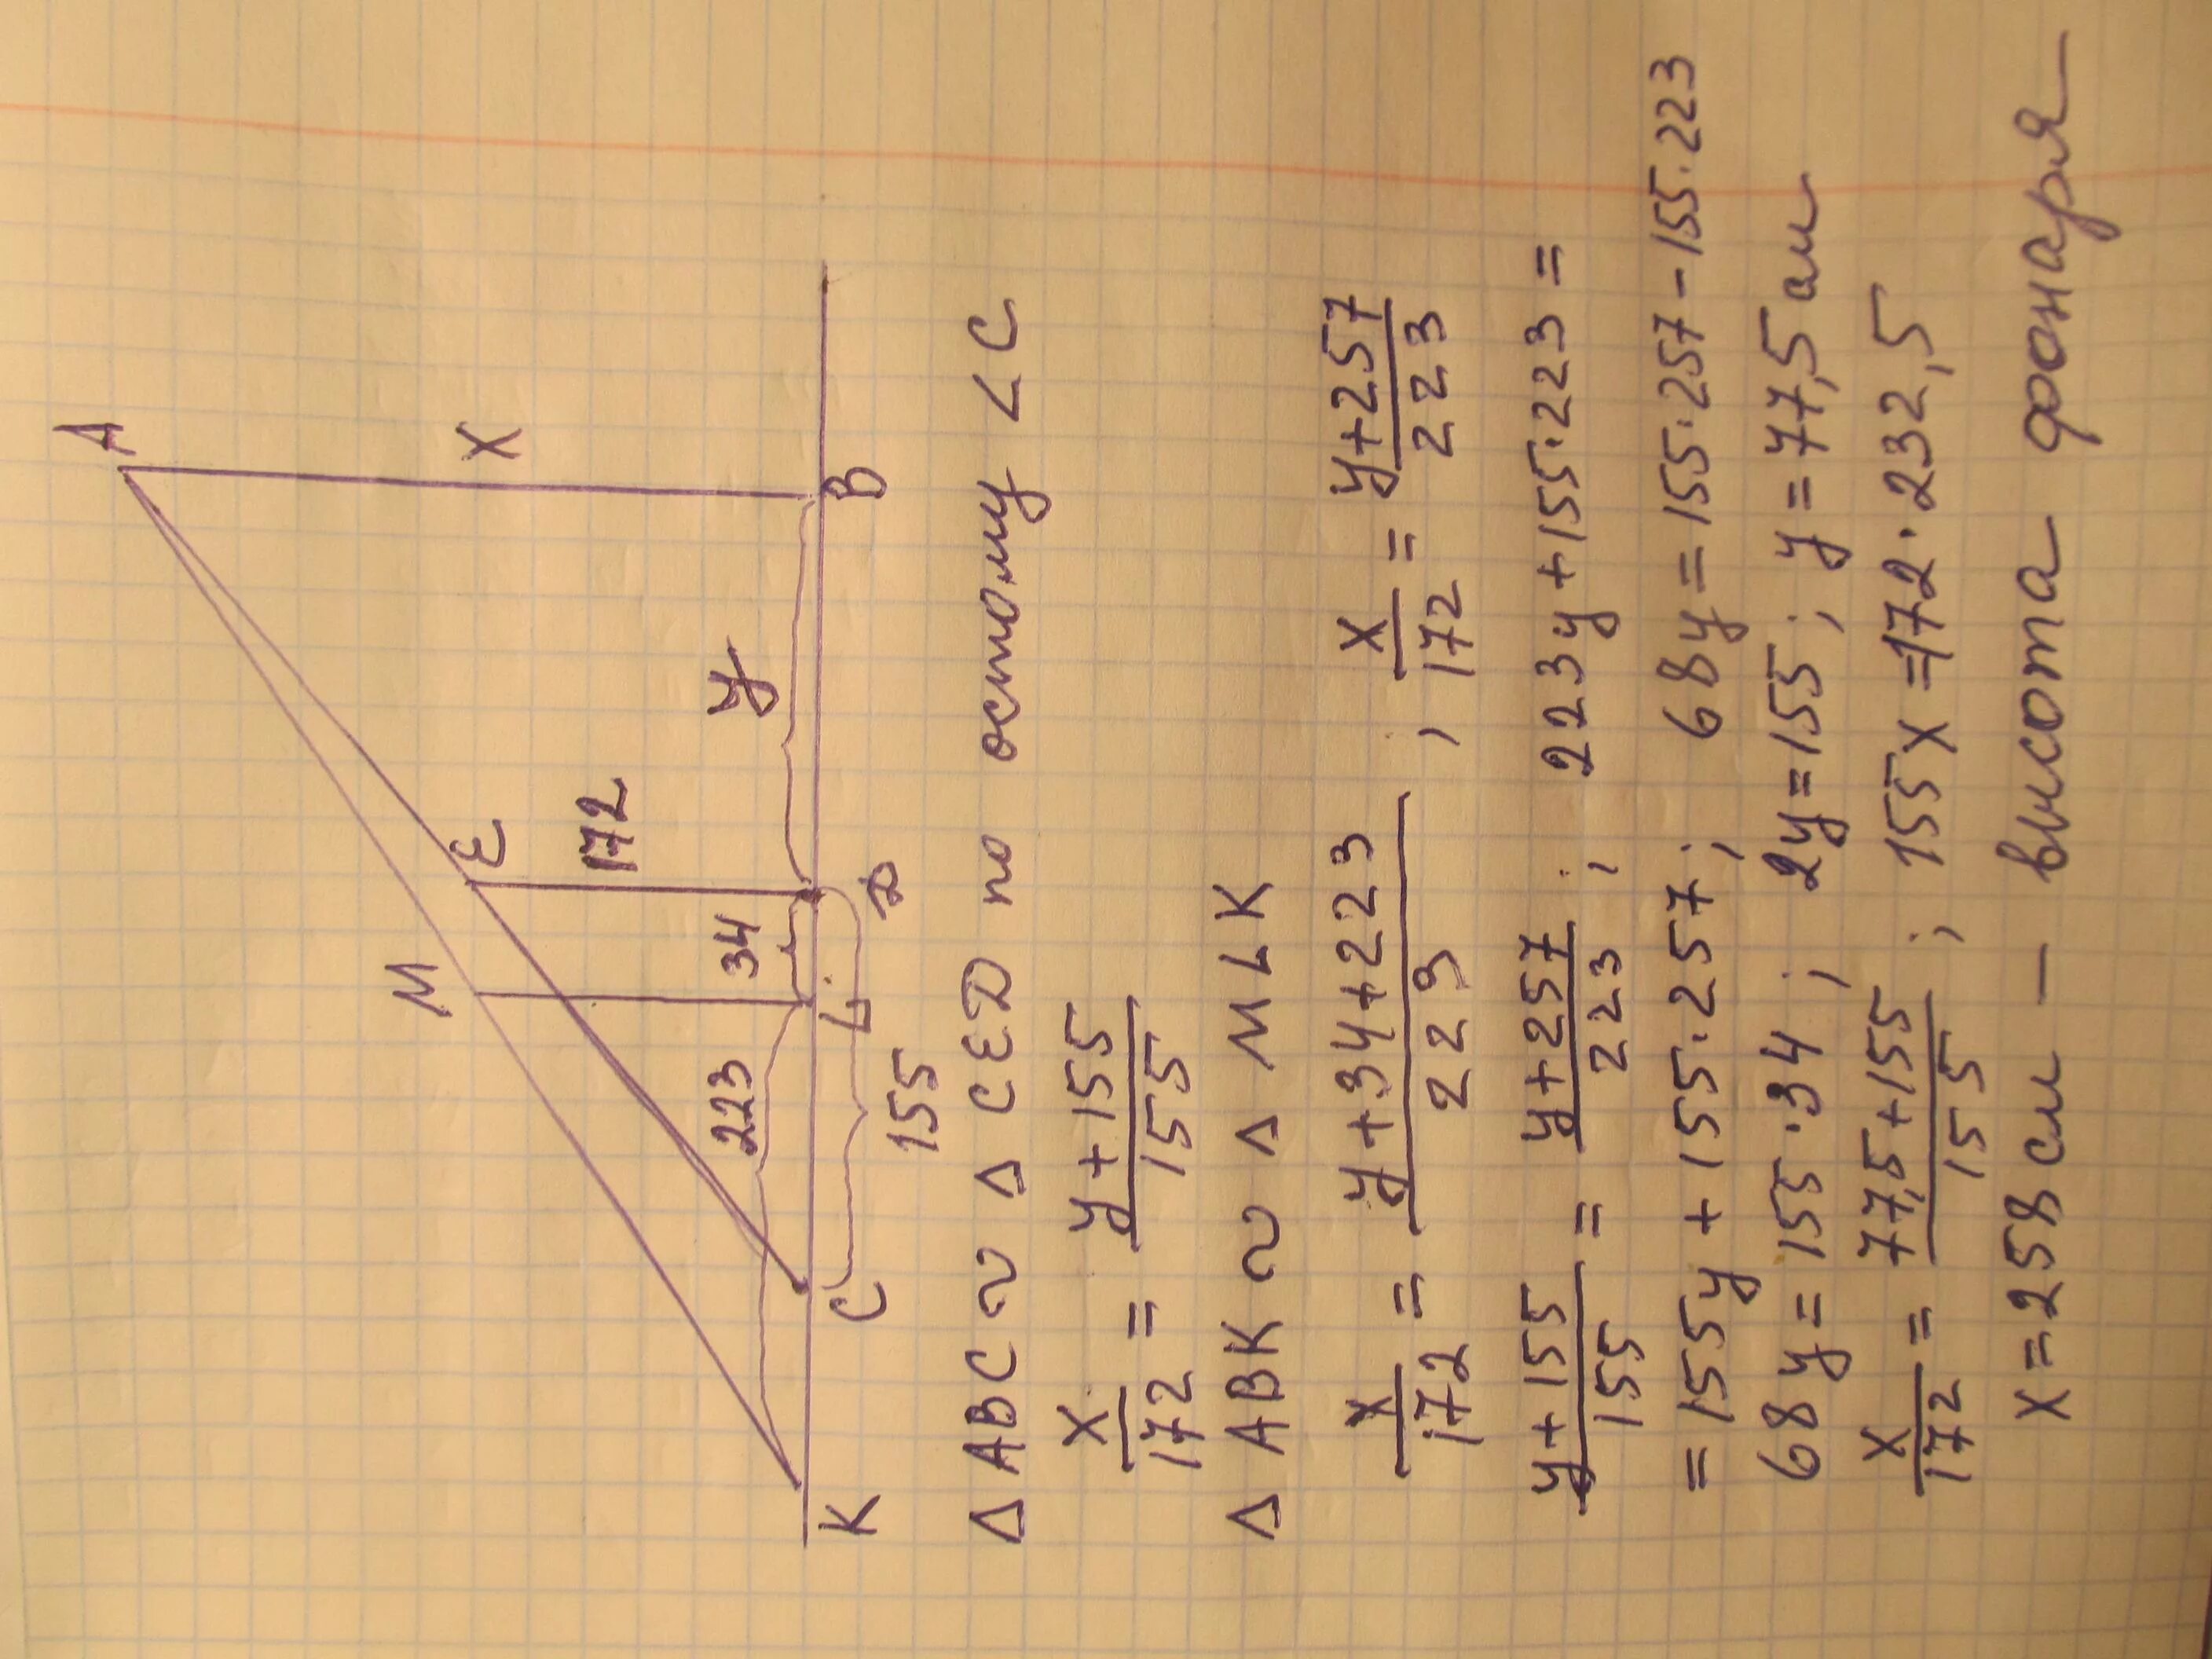 A
M
E
X
172
34
y
223
K
C
L
D
B
155
Δ ABC ∾ Δ CED по острому ∠C
x/172 = y+155/155
Δ ABK ∾ Δ MLK
x/172 = y+34+223/223 , x/172 = y+257/223
y+155/155 = y+257/223 ; 223y+155·223=
=155y+155·257; 68y=155·257-155·223
68y=155·34 ; 2y=155 ; y=77,5 см
x/172 = 77,5+155/155 ; 155x=172·232,5
x=258 см – высота фонаря